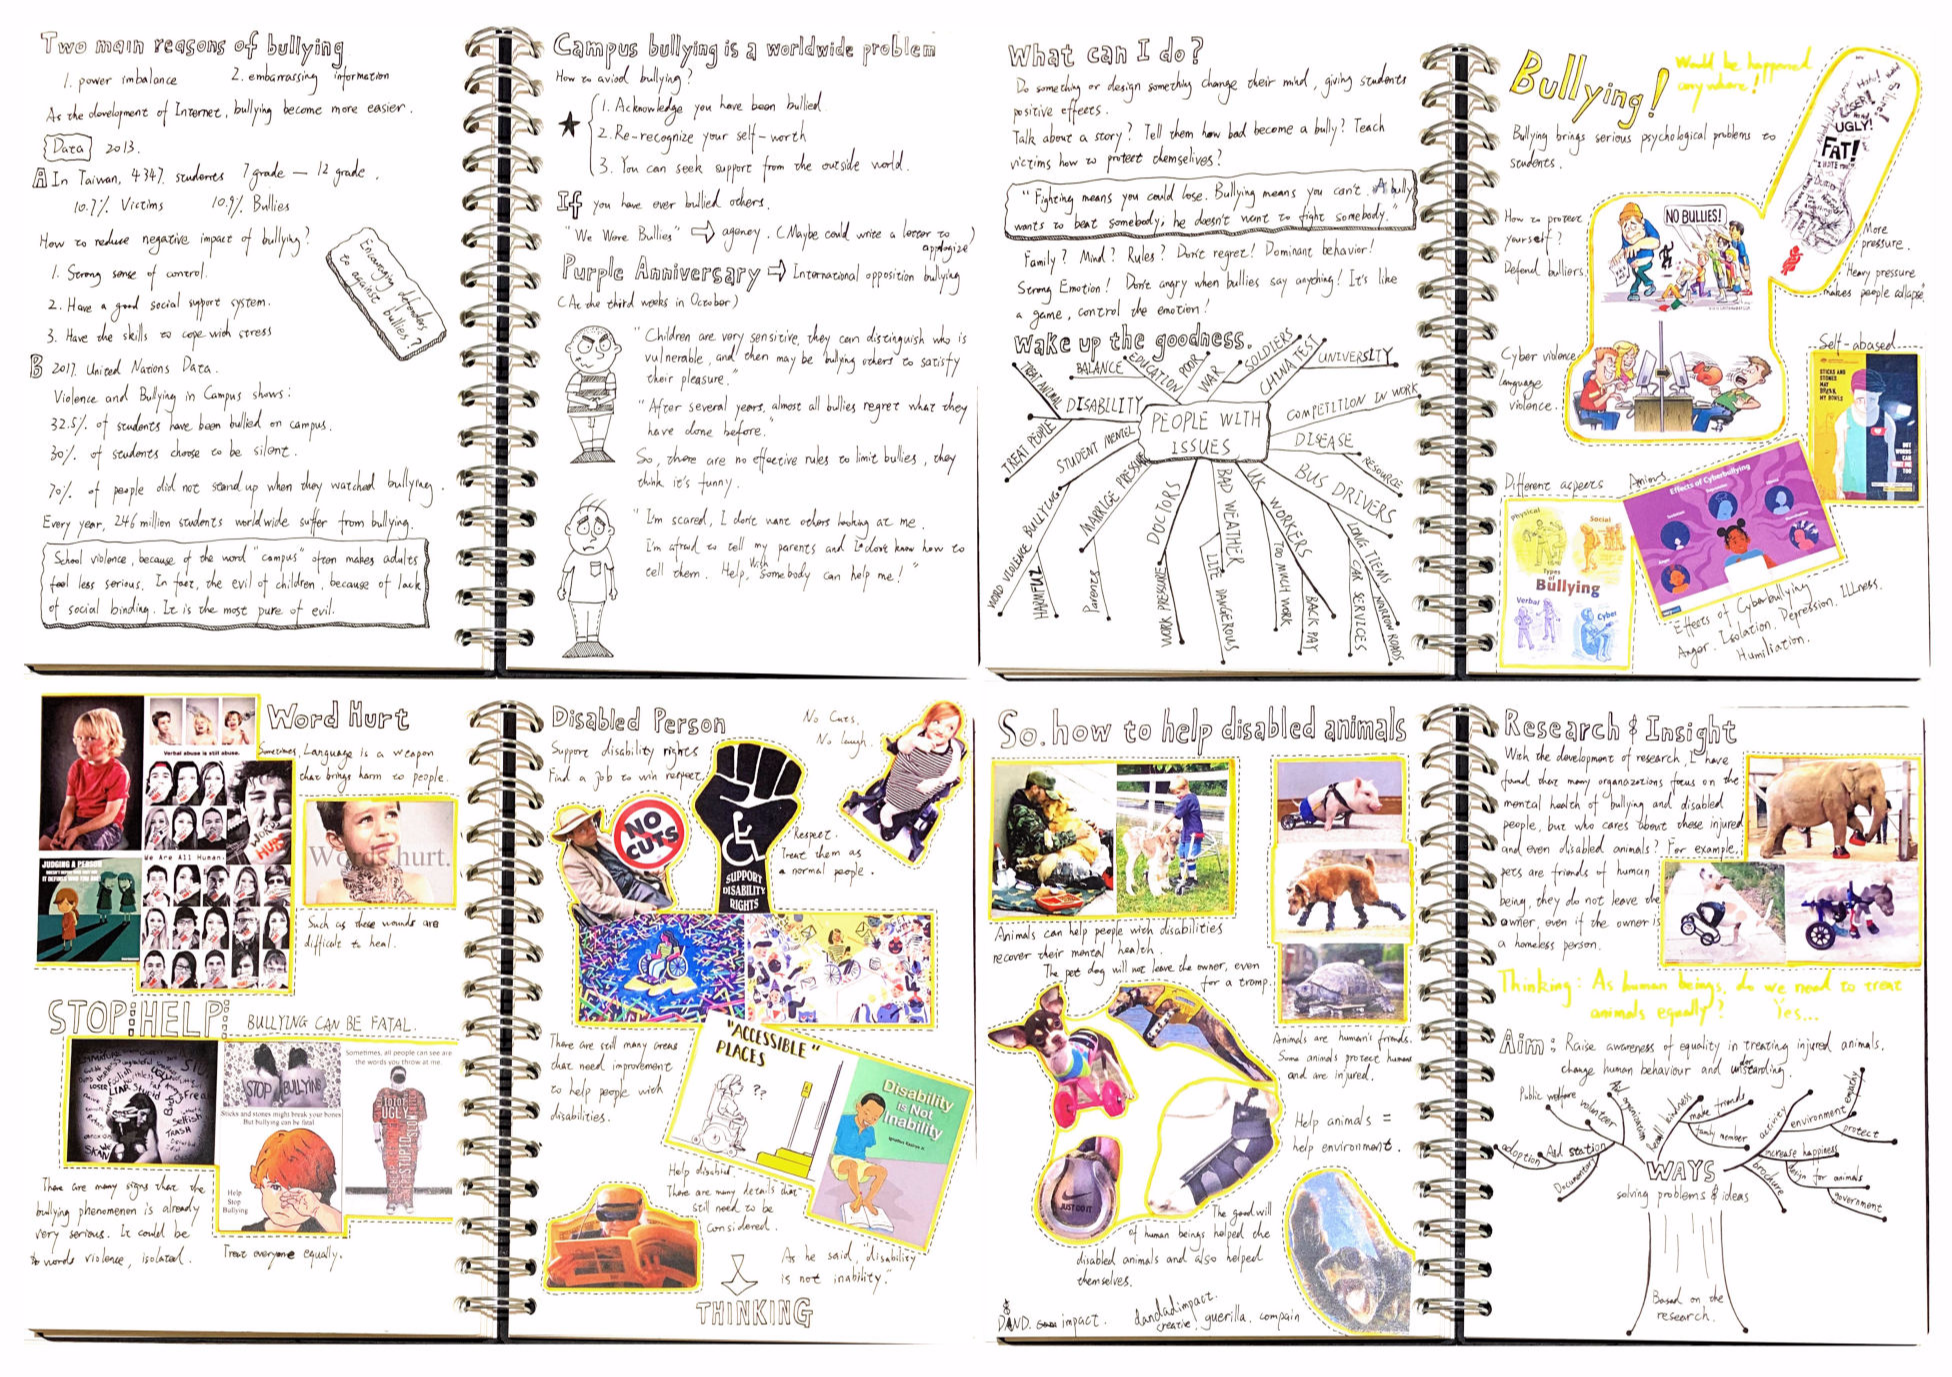 Two main reasons of bullying
1. power imbalance 2. embarrassing information
As the development of Internet, bullying become more easier.
Data 2013.
A In Taiwan, 4347 students 7 grade — 12 grade.
10.7% Victims 10.9% Bullies
How to reduce negative impact of bullying?
1. Strong sense of control.
2. Have a good social support system.
3. Have the skills to cope with stress
Encouraging defenders
to against bullies?
B 2017. United Nations Data.
Violence and Bullying in Campus shows:
32.5% of students have been bullied on campus.
30% of students choose to be silent.
70% of people did not stand up when they watched bullying.
Every year, 246 million students worldwide suffer from bullying.
School violence, because of the word "campus" often makes adults
feel less serious. In fact, the evil of children, because of lack
of social binding. It is the most pure of evil.
Campus bullying is a worldwide problem
How to aviod bullying?
1. Acknowledge you have been bullied.
2. Re-recognize your self-worth
3. You can seek support from the outside world.
If you have ever bullied others.
"We Were Bullies" → agency. (Maybe could write a letter to
apologize)
Purple Anniversary → International opposition bullying
(At the third weeks in October)
"Children are very sensitive, they can distinguish who is
vulnerable, and then may be bullying others to satisfy
their pleasure."
"After several years, almost all bullies regret what they
have done before."
So, there are no effective rules to limit bullies, they
think it's funny.
"I'm scared, I don't want others looking at me.
I'm afraid to tell my parents and I don't know how to
tell them. Help, Wish somebody can help me!"
What can I do?
Do something or design something change their mind, giving students
positive effects.
Talk about a story? Tell them how bad become a bully? Teach
victims how to protect themselives?
"Fighting means you could lose. Bullying means you can't. A bully
wants to beat somebody; he doesn't want to fight somebody."
Family? Mind? Rules? Don't regret! Dominant behavior!
Strong Emotion! Don't angry when bullies say anything! It's like
a game, control the emotion!
Wake up the goodness.
PEOPLE WITH
ISSUES
TREAT ANIMAL
BALANCE
EDUCATION
POOR
WAR
SOLDIERS
CHINA TEST
UNIVERSITY
DISABILITY
TREAT PEOPLE
STUDENT MENTEL
COMPETITION IN WORK
DISEASE
RESOURCE
BUS DRIVERS
BULLYING
WORD VIOLENCE
MARRIGE PRESSURE
Parents
DOCTORS
WORK PRESSURE
BAD WEATHER
LIFE DANGEROUS
UK WORKERS
TOO MUCH WORK
BACK PAY
LONG TIEMS
CAR SERVICES
NARROW ROADS
Bullying!
Would be happened
anywhere!
Bullying brings serious psychological problems to
students.
UGLY!
FAT!
How to protect
yourself?
Defend bulliers.
NO BULLIES!
More
pressure.
"Heavy pressure
makes people collapse"
Cyber violence
Language
violence.
Self-abased
STICKS AND
STONES
MAY
BREAK
MY BONES
BUT
WORDS
CAN
Different aspects
Physical
Social
Types
of
Bullying
Verbal
Cyber
Effects of Cyberbullying
Effects of Cyberbullying
Anger. Isolation. Depression. Illness.
Humiliation.
Word Hurt
Verbal abuse is still abuse.
Sometimes, Language is a weapon
that brings harm to people.
We Are All Human.
WORDS
HURT
JUDGING A PERSON
Words hurt.
Such as these wounds are
difficult to heal.
STOP HELP
BULLYING CAN BE FATAL.
LOSER
LIAR
Stupid
Selfish
TRASH
STOP BULLYING
Sticks and stones might break your bones
But bullying can be fatal
Help
Stop
Bullying
Sometimes, all people can see are
the words you throw at me.
IDIOT
UGLY
STUPID
There are many signs that the
bullying phenomenen is already
very serious. It could be
to words violence, isolated.
Treat everyone equally.
Disabled Person
Support disability rights
Find a job to win respect.
No Cuts.
No laugh.
NO
CUTS
SUPPORT
DISABILITY
RIGHTS
"Respect.
Treat them as
a normal people.
There are still many areas
that need improvement
to help people with
disabilities.
"ACCESSIBLE"
PLACES
??
Disability
is Not
Inability
Help disabled.
There are many details that
still need to be
considered.
As he said, "disability
is not inability."
THINKING
So. how to help disabled animals
Animals can help people with disabilities
recover their mental health.
The pet dog will not leave the owner, even
for a tramp.
Animals are human's friends.
Some animals protect humans
and are injured.
Help animals =
help environment.
JUST DO IT
The good will
of human beings helped the
disabled animals and also helped
themselves.
D&AD. impact. dandadimpact.
creative. guerilla. compain
Research & Insight
With the development of research, I have
found that many organazations focus on the
mental health of bullying and disabled
people, but who cares about these injured
and even disabled animals? For example,
pets are friends of human
being, they do not leave the
owner, even if the owner is
a homeless person.
Thinking: As human beings, do we need to treat
animals equally? Yes...
Aim: Raise awareness of equality in treating injured animals.
change human behaviour and
Public welfare
volunteer
Aid organization
adoption
Aid station
Documentary
Recall kindness
make friends
family member
activity
environment
empathy
protect
increase happiness
design for animals
government
brochure
WAYS
solving problems & ideas
Based on the
research.